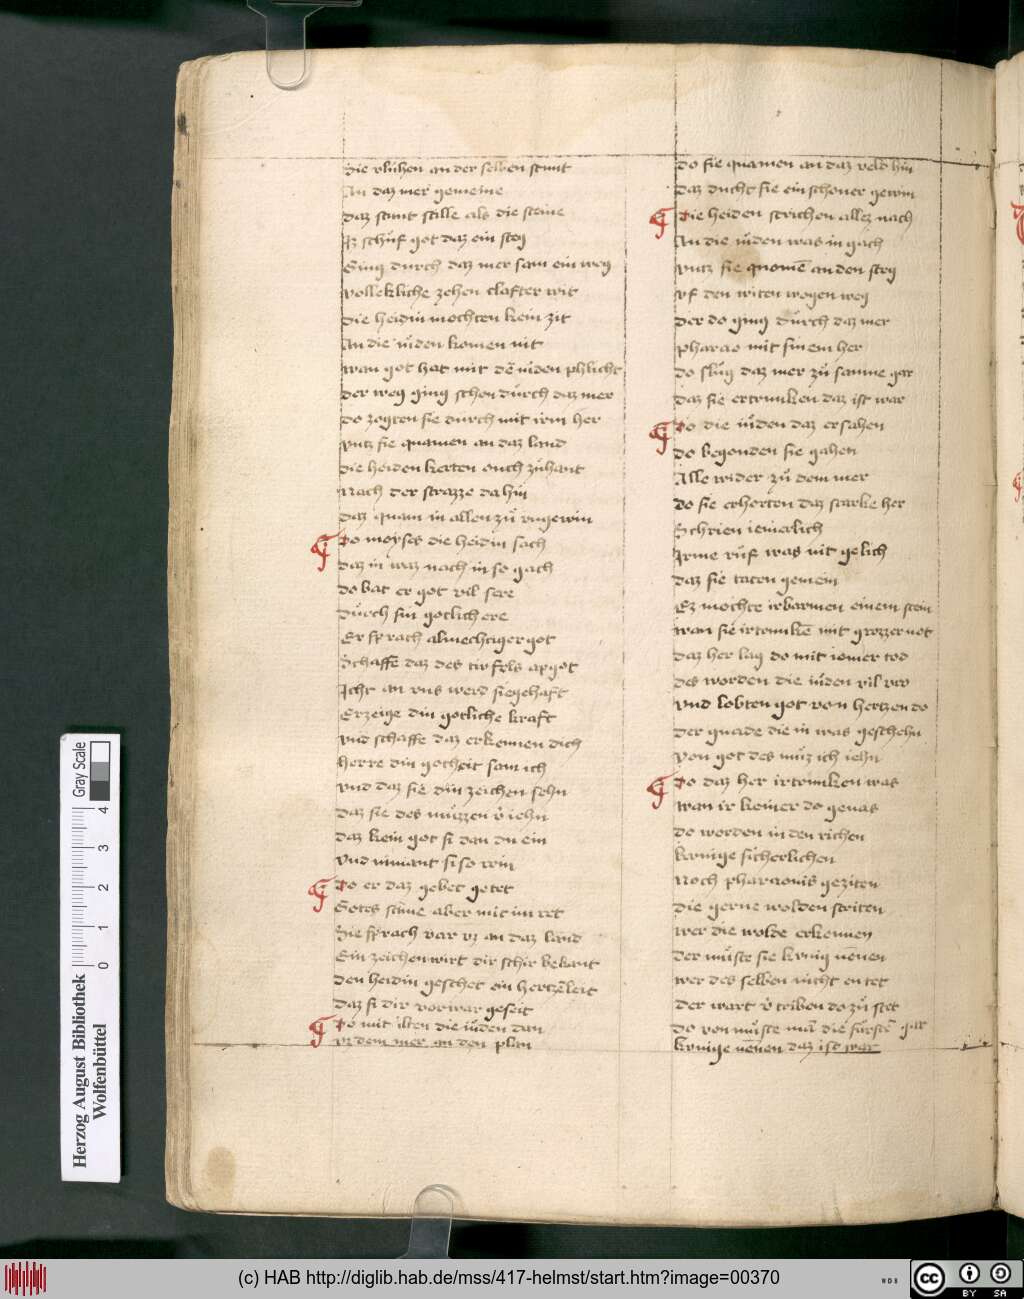 die vluhen an der selben stunt
An daz mer gemeine
daz stunt stille als die steine
Iz schuf got daz ein steg
Ging durch daz mer sam ein weg
vollekliche zehen clafter wit
die heidin mochten kein zit
An die iuden komen nit
wan got hat mit dē iuden phlicht
der weg ging schon durch daz mer
do zogten sie durch mit irm her
untz sie quamen an daz land
die heiden kerten ouch zuhant
Nach der strazze da hin
daz quam in allen zu ungewin
Do moyses die heidin sach
daz in waz nach in so gach
do bat er got vil sere
durch sin gotlich ere
Er sprach almechtiger got
Schaffe daz des tiefels apgot
Icht an uns werd siegehaft
Erzeige din gotliche kraft
und schaffe daz erkennen dich
herre din gotheit sam ich
und daz sie din zeichen sehn
daz sie des muzzen v̓iehn
daz kein got si dan du ein
und nimant si so rein
Do er daz gebet getet
Gotes stime aber mit im ret
Sie sprach var uz an daz land
Ein zeichen wirt dir schir bekant
Den heidin geschet ein hertzeleit
daz si dir vorwar geseit
Do mit ilten die iuden dan
uz dem mer an den plan
do sie quamen an daz velt hin
daz ducht sie ein schoner gewin
Die heiden strichen allez nach
An die iuden was in gach
untz sie quomē an den steg
uf den witen wegen weg
Der do ging durch daz mer
pharao mit sinem her
do slug daz mer zu samne gar
daz sie ertrunken daz ist war
Do die iuden daz ersahen
do begonden sie gahen
Alle wider zu dem mer
do sie erhorten daz starke her
Schrien iemerlich
Irme ruf was nit gelich
daz sie taten gemein
Ez mochte irbarmen einem stein
wan sie irtrunkē mit grozzer not
daz her lag do mit iomer tod
des worden die iuden vil vro
und lobten got von hertzen do
der gnade die in was geschehn
von got des muz ich iehn
Do daz her irtrunken was
wan ir keiner do genas
do worden in den richen
kunige sicherlichen
Noch pharaonis geziten
die gerne wolden striten
wer die wolde erkennen
der muste sie kunig nennen
wer des selben nicht en tet
der wart v̓triben do zu stet
do von muste mā die fursten gar
kunige nennen daz ist war
Herzog August Bibliothek
Wolfenbüttel
0 1 2 3 4
Gray Scale
(c) HAB http://diglib.hab.de/mss/417-helmst/start.htm?image=00370
WDB
cc BY SA